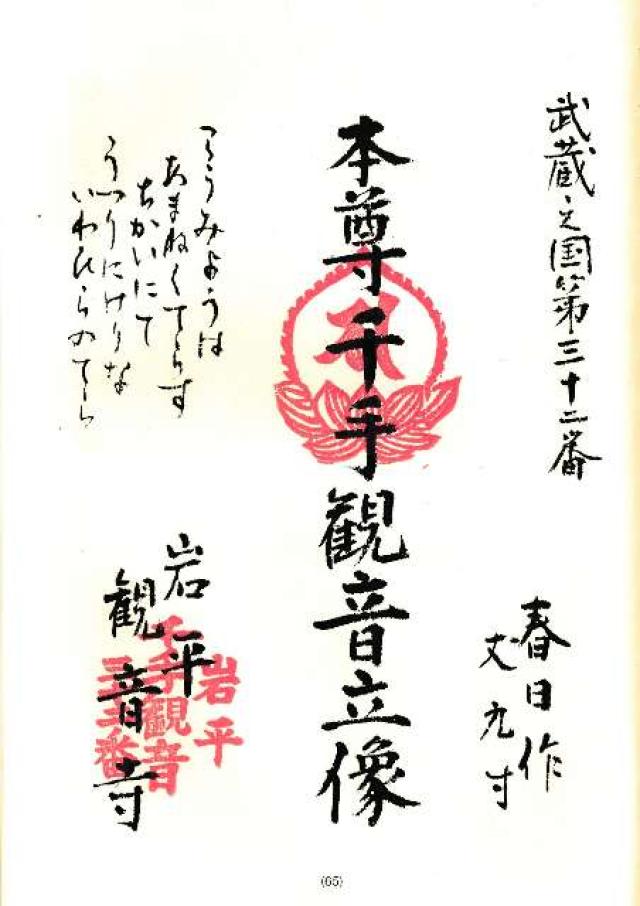 武蔵之国第三十二番
春日作
丈九寸
本尊千手観音立像
こうみようは
あまねくてらす
ちかいにて
うつりにけりな
いわひらのてら
岩平
観音寺
岩平
千手観音
三十二番
(65)